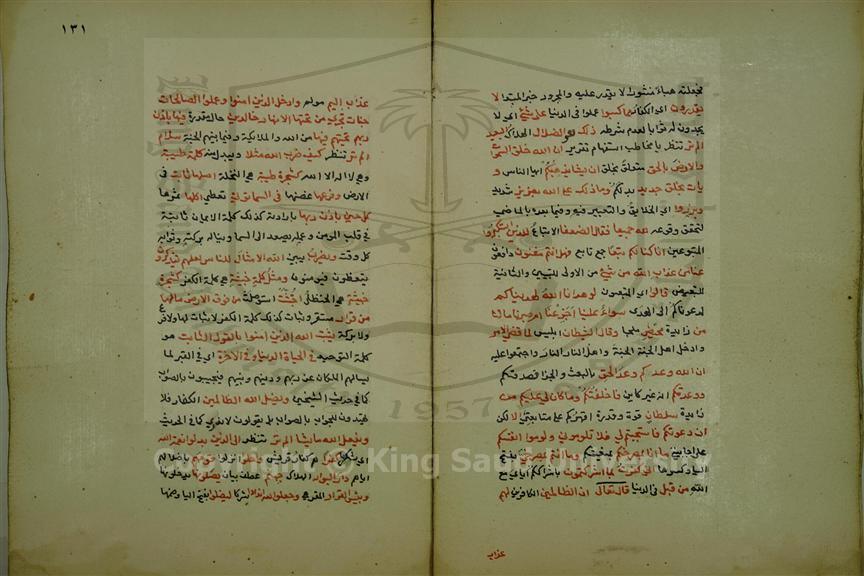 فجعلته هباء منثورا لا يقدر عليه والمجرور خبر المبتدا لا
يقدرون اي الكفار مما كسبوا عملوا في الدنيا على شئ اي لا
يجدون له ثوابا لعدم شرطه ذلك هو الضلال الهلاك البعيد
الم تر تنظر يا مخاطب استفهام تقرير ان الله خلق السموات
والارض بالحق متعلق بخلق ان يشا يذهبكم ايها الناس و
يات بخلق جديد بدلكم وما ذلك على الله بعزيز شديد
وبرزوا اي الخلايق والتعبير فيه وفيما بعده بالماضي
لتحقق وقوعه لله جميعا فقال الضعفا الاتباع للذين استكبروا
المتبوعين انا كنا لكم تبعا جمع تابع فهل انتم مغنون دافعون
عنا من عذاب الله من شئ من الاولى للتبيين والثانية
للتبعيض قالوا اي المتبعون لو هدانا الله لهديناكم
لدعوناكم الى الهدى سواء علينا اجزعنا ام صبرنا مالنا
من زايدة محيص ملجا وقال الشيطان ابليس لما قضي الامر
وادخل اهل الجنة الجنة واهل النار النار واجتمعوا عليه
ان الله وعدكم وعد الحق بالبعث والجزا فصدقكم
ووعدتكم انه غير كاين فاخلفتكم وما كان لي عليكم من
زايدة سلطان قوة وقدرة اقهركم على متابعتي الا لكن
ان دعوتكم فاستجبتم لي فلا تلوموني ولوموا انفسكم
على اجابتي ما انا بمصرخكم بمغيثكم وما انتم بمصرخي بفتح
اليا وكسرها اني كفرت بما اشركتمون باشراككم اياي مع
الله من قبل في الدنيا قال تعالى ان الظالمين الكافرين لهم
عذاب
١٣١
عذاب اليم مولم وادخل الذين امنوا وعملوا الصالحات
جنات تجري من تحتها الانهار خالدين حال مقدرة فيها باذن
ربهم تحيتهم فيها من الله والملائكة وفيما بينهم سلام
الم تر تنظر كيف ضرب الله مثلا ويبدل منه كلمة طيبة
وهي لا اله الا الله كشجرة طيبة هي النخلة اصلها ثابت في
الارض وفرعها غصنها في السما تؤتي تعطي اكلها ثمرها
كل حين باذن ربها بارادته كذلك كلمة الايمان ثابتة
في قلب المومن وعمله يصعد الى السما ويناله بركته وثوابه
كل وقت ويضرب يبين الله الامثال للناس لعلهم يتذكرون
يتعظون فيومنون ومثل كلمة خبيثة هي كلمة الكفر كشجرة
خبيثة هي الحنظل اجتثت استوصلت من فوق الارض مالها
من قرار مستقر وثبات كذلك كلمة الكفر لا ثبات لها ولا فرع
ولا بركة يثبت الله الذين امنوا بالقول الثابت هو
كلمة التوحيد في الحياة الدنيا وفي الاخرة اي في القبر لما
يسالهم الملكان عن ربهم ودينهم ونبيهم فيجيبون بالصواب
كما في حديث الشيخين ويضل الله الظالمين الكفار فلا
يهتدون للجواب بالصواب بل يقولون لا ندري كما في الحديث
ويفعل الله ما يشا الم تر تنظر الى الذين بدلوا نعمة الله
اي شكرها كفرا هم كفار قريش واحلوا انزلوا قومهم باضلالهم
اياهم دار البوار الهلاك جهنم عطف بيان يصلونها يدخلونها
وبئس القرار المقر هي وجعلوا لله اندادا شركا ليضلوا بفتح اليا وضمها
Copyright © King Saud University
1957